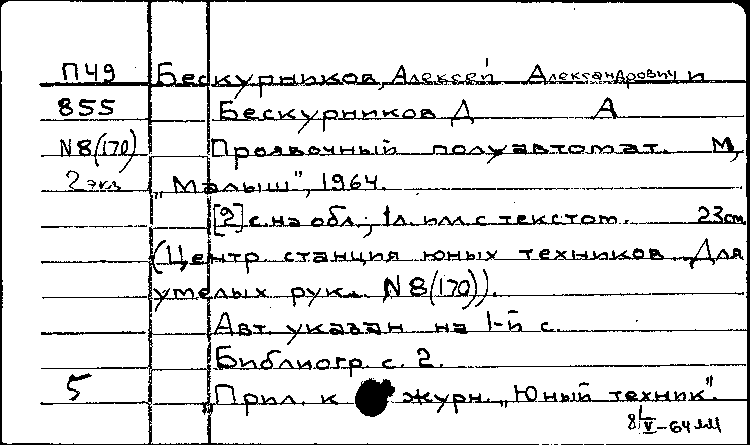 П49 Бескурников, Алексей Александрович и
855 Бескурников Д А
N8(170) Проявочный полуавтомат. М,
2 экз „Малыш", 1964.
[2] с. на обл.; 1 л. илл с текстом. 23см.
(Центр. станция юных техников. Для
умелых рук. N8(170)).
Авт. указан на 1-й с.
Библиогр. с. 2.
5 „Прил. к журн. „Юный техник".
8/V-64